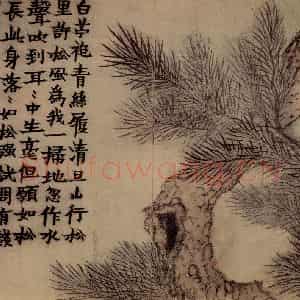 白苧袍青絲履清旦山行松
里許松風為我一掃地忽作水
聲吹到耳〻中生意但願如松
長此身落〻如松强試問有談